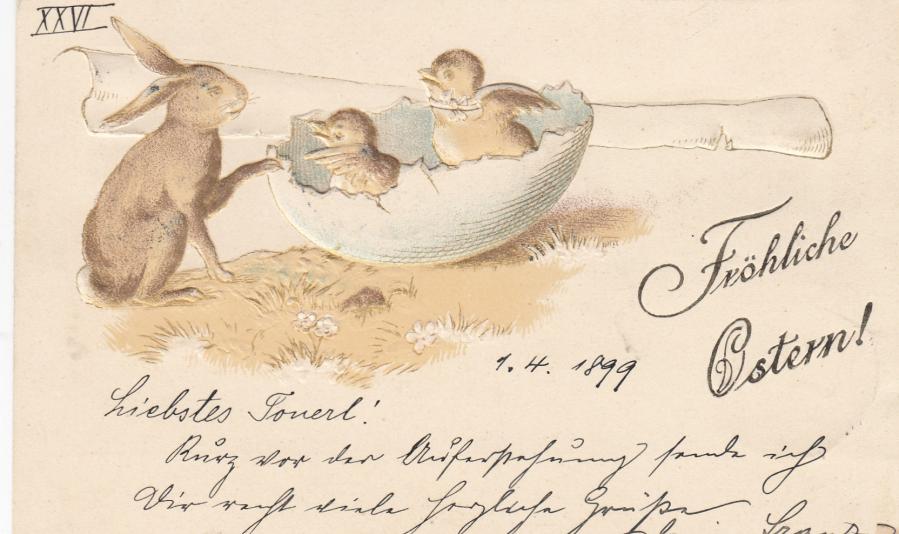 XXVI
Fröhliche
Ostern!
1. 4. 1899
Liebstes Tonerl!
Kurz vor der Auferstehung sende ich
Dir recht viele herzliche Grüße
Franz